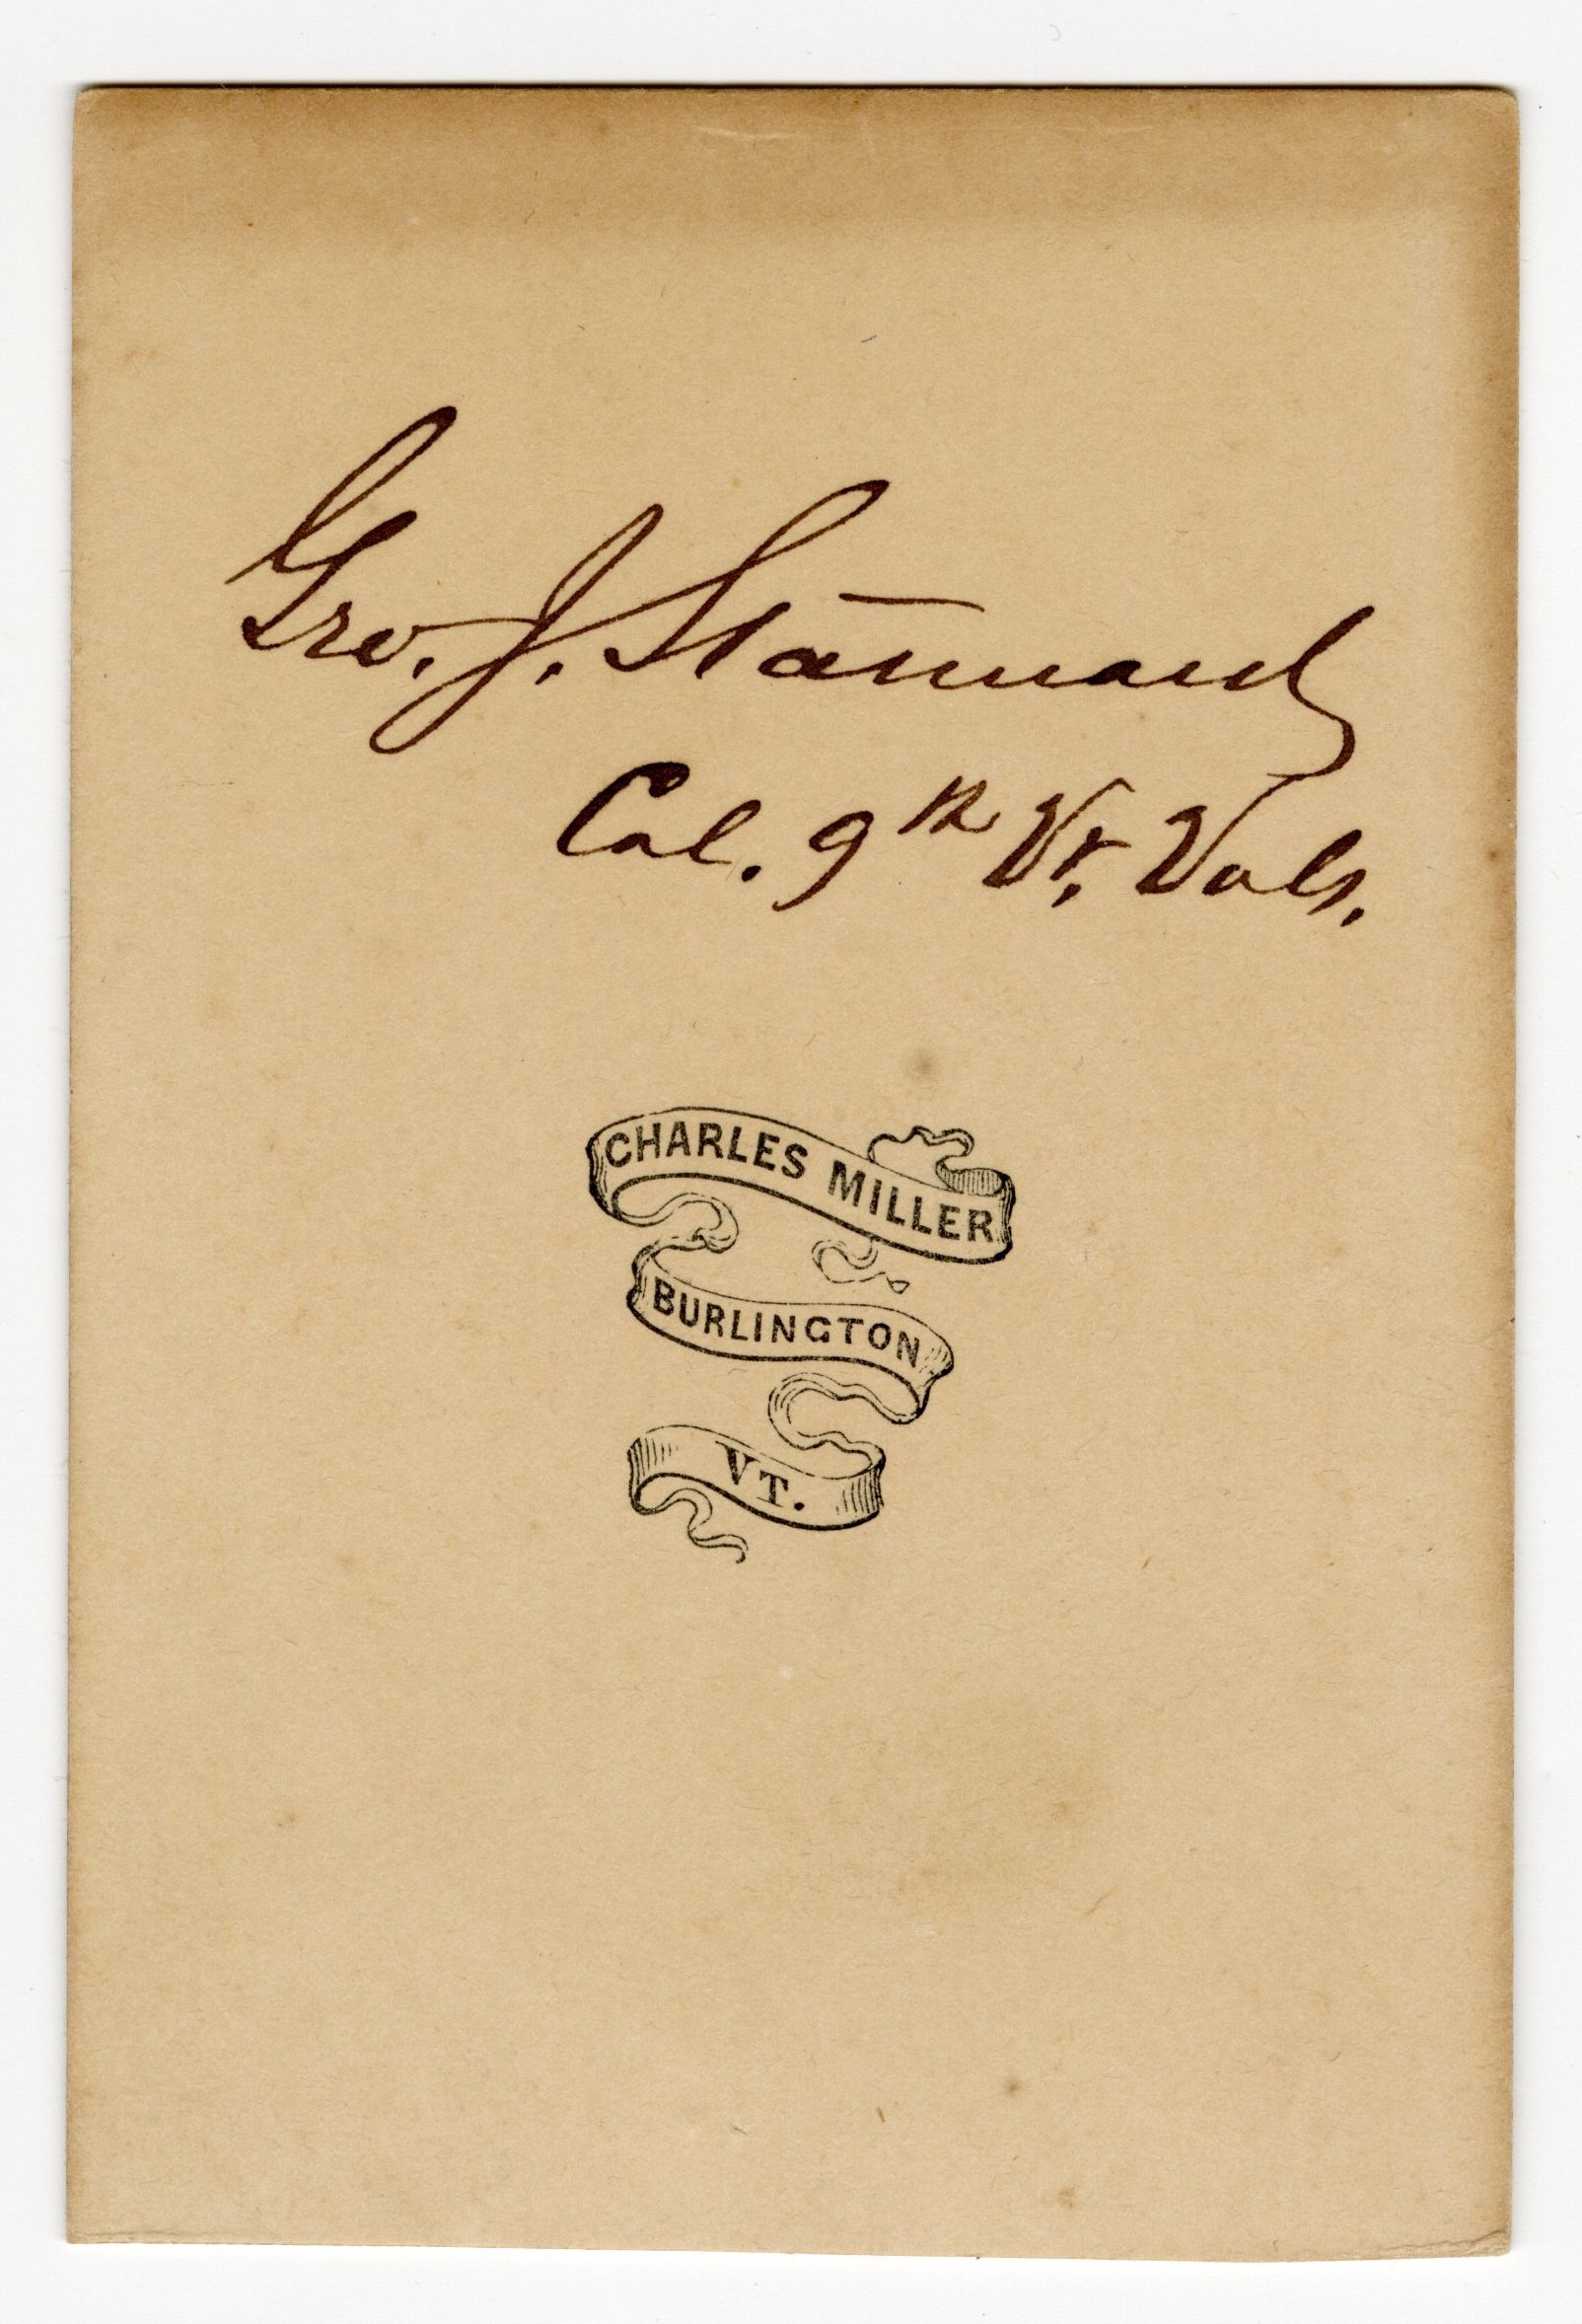 Geo. J. Stannard
Col. 9th Vt. Vols.
CHARLES MILLER
BURLINGTON
VT.